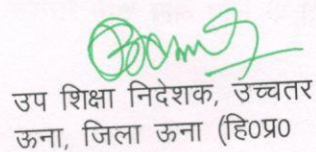 उप शिक्षा निदेशक, उच्चतर
ऊना, जिला ऊना (हि०प्र०